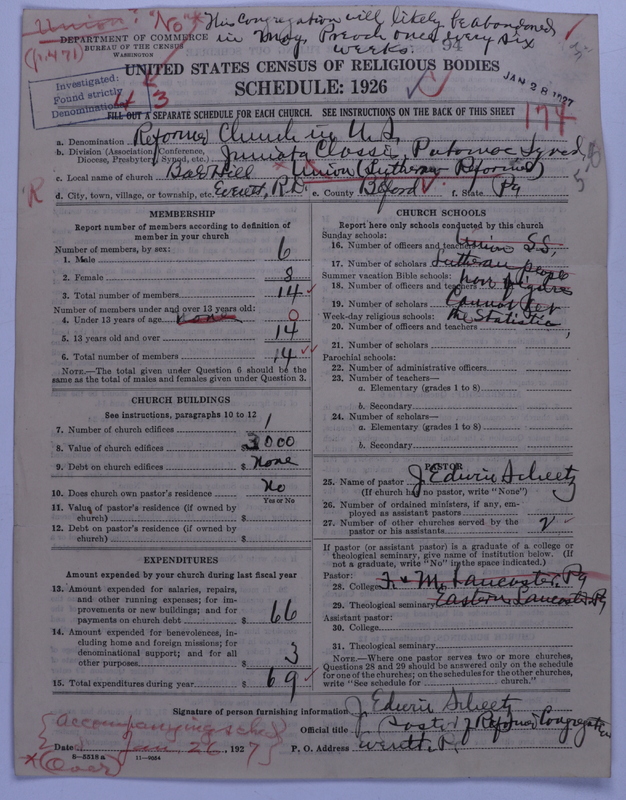 Union? "No" * This Congregation will likely be abandoned
in May, Preach once every six
weeks. 94
(p. 471)
DEPARTMENT OF COMMERCE
BUREAU OF THE CENSUS
WASHINGTON
UNITED STATES CENSUS OF RELIGIOUS BODIES
SCHEDULE: 1926
JAN 28 1927
Investigated:
Found strictly
Denominational
43
174
FILL OUT A SEPARATE SCHEDULE FOR EACH CHURCH. SEE INSTRUCTIONS ON THE BACK OF THIS SHEET
a. Denomination Reformed Church in U.S.
b. Division (Association, Conference, Diocese, Presbytery, Synod, etc.) Juniata Classis, Potomac Synod
c. Local name of church Union (Lutheran Reformed)
R
d. City, town, village, or township, etc. Everett, R.D. e. County Bedford f. State Pa
5
MEMBERSHIP
Report number of members according to definition of
member in your church
Number of members, by sex:
1. Male 6
2. Female 8
3. Total number of members 14
Number of members under and over 13 years old:
4. Under 13 years of age none 0
5. 13 years old and over 14
6. Total number of members 14
NOTE.—The total given under Question 6 should be the
same as the total of males and females given under Question 3.
CHURCH BUILDINGS
See instructions, paragraphs 10 to 12
7. Number of church edifices 1
8. Value of church edifices $ 3000
9. Debt on church edifices $ None
10. Does church own pastor's residence No
Yes or No
11. Value of pastor's residence (if owned by
church) $
12. Debt on pastor's residence (if owned by
church) $
EXPENDITURES
Amount expended by your church during last fiscal year
13. Amount expended for salaries, repairs,
and other running expenses; for im-
provements or new buildings; and for
payments on church debt $ 66
14. Amount expended for benevolences, in-
cluding home and foreign missions; for
denominational support; and for all
other purposes 3
15. Total expenditures during year $ 69
CHURCH SCHOOLS
Report here only schools conducted by this church
Sunday schools:
16. Number of officers and teachers Union S.S,
17. Number of scholars Lutheran people
Summer vacation Bible schools:
18. Number of officers and teachers
19. Number of scholars Cannot get
Week-day religious schools: the statistics,
20. Number of officers and teachers
21. Number of scholars
Parochial schools:
22. Number of administrative officers
23. Number of teachers—
a. Elementary (grades 1 to 8)
b. Secondary
24. Number of scholars—
a. Elementary (grades 1 to 8)
b. Secondary
PASTOR
25. Name of pastor J Edwin Sheetz
(If church has no pastor, write "None")
26. Number of ordained ministers, if any, em-
ployed as assistant pastors
27. Number of other churches served by the
pastor or his assistants 2
If pastor (or assistant pastor) is a graduate of a college or
theological seminary, give name of institution below. (If
not a graduate, write "No" in the space indicated.)
Pastor:
28. College F. & M. Lancaster, Pa
29. Theological seminary Eastern Lancaster, Pa
Assistant pastor:
30. College
31. Theological seminary
NOTE.—Where one pastor serves two or more churches,
Questions 28 and 29 should be answered only on the schedule
for one of the churches; on the schedules for the other churches,
write "See schedule for church."
Signature of person furnishing information J. Edwin Sheetz
Official title Pastor of Reformed Congregation
accompanying sched
Date Jan 26, 1927 P. O. Address Everett Pa.
* (Over)
8—5518 a 11—9054